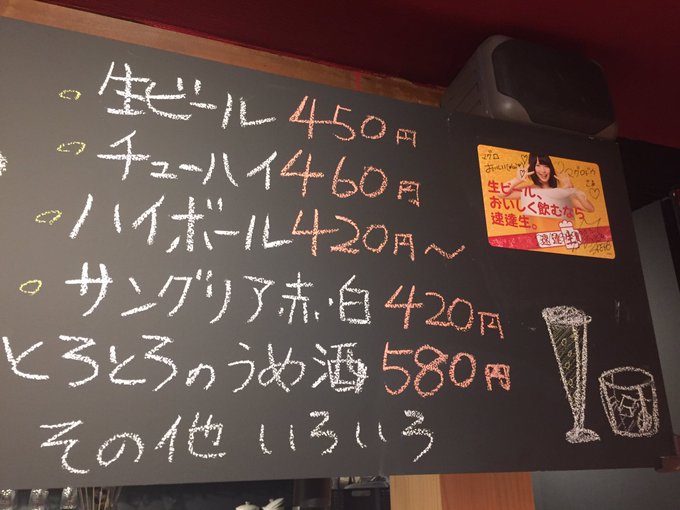 生ビール 450円
チューハイ 460円
ハイボール 420円～
サングリア赤・白 420円
とろとろのうめ酒 580円
その他 いろいろ
生ビール、
おいしく飲むなら
速達生。
速達生